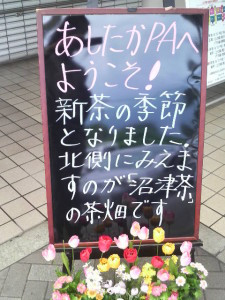 あしたかPAへ
ようこそ!
新茶の季節
となりました。
北側にみえま
すのが「沼津茶」
の茶畑です